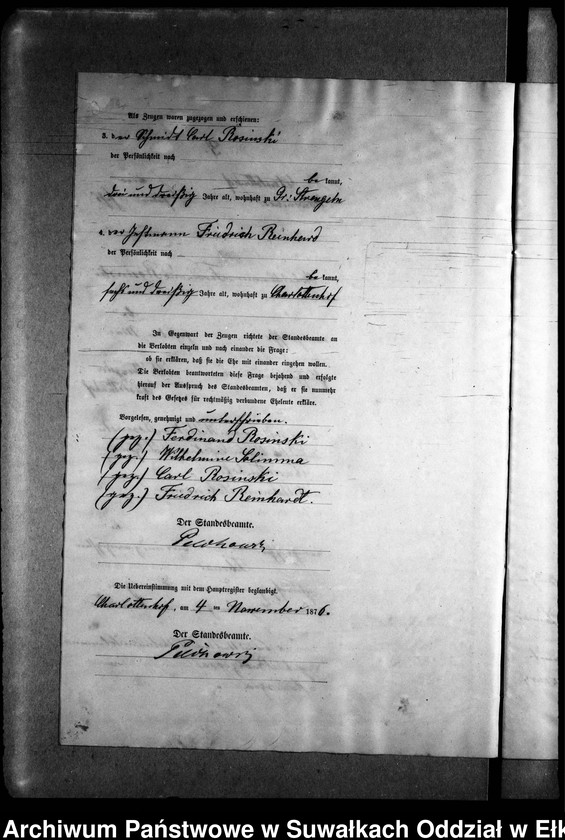 Als Zeugen waren zugezogen und erschienen:
3. der Schmidt Carl Rosinski
der Persönlichkeit nach
be kannt,
drei und dreißig Jahre alt, wohnhaft zu Gr: Strengeln
4. der Instmann Friedrich Reinhard
der Persönlichkeit nach
be kannt,
sechs und dreißig Jahre alt, wohnhaft zu Charlottenhof
In Gegenwart der Zeugen richtete der Standesbeamte an
die Verlobten einzeln und nach einander die Frage:
ob sie erklären, daß sie die Ehe mit einander eingehen wollen.
Die Verlobten beantworteten diese Frage bejahend und erfolgte
hierauf der Ausspruch des Standesbeamten, daß er sie nunmehr
kraft des Gesetzes für rechtmäßig verbundene Eheleute erkläre.
Vorgelesen, genehmigt und unterschrieben.
(gez.) Ferdinand Rosinski
(gez.) Wilhelmine Slimma
(gez.) Carl Rosinski
(gez.) Friedrich Reinhardt.
Der Standesbeamte.
Die Uebereinstimmung mit dem Hauptregister beglaubigt.
Charlottenhof, am 4 ten November 1876.
Der Standesbeamte.
Archiwum Państwowe w Suwałkach Oddział w Ełk